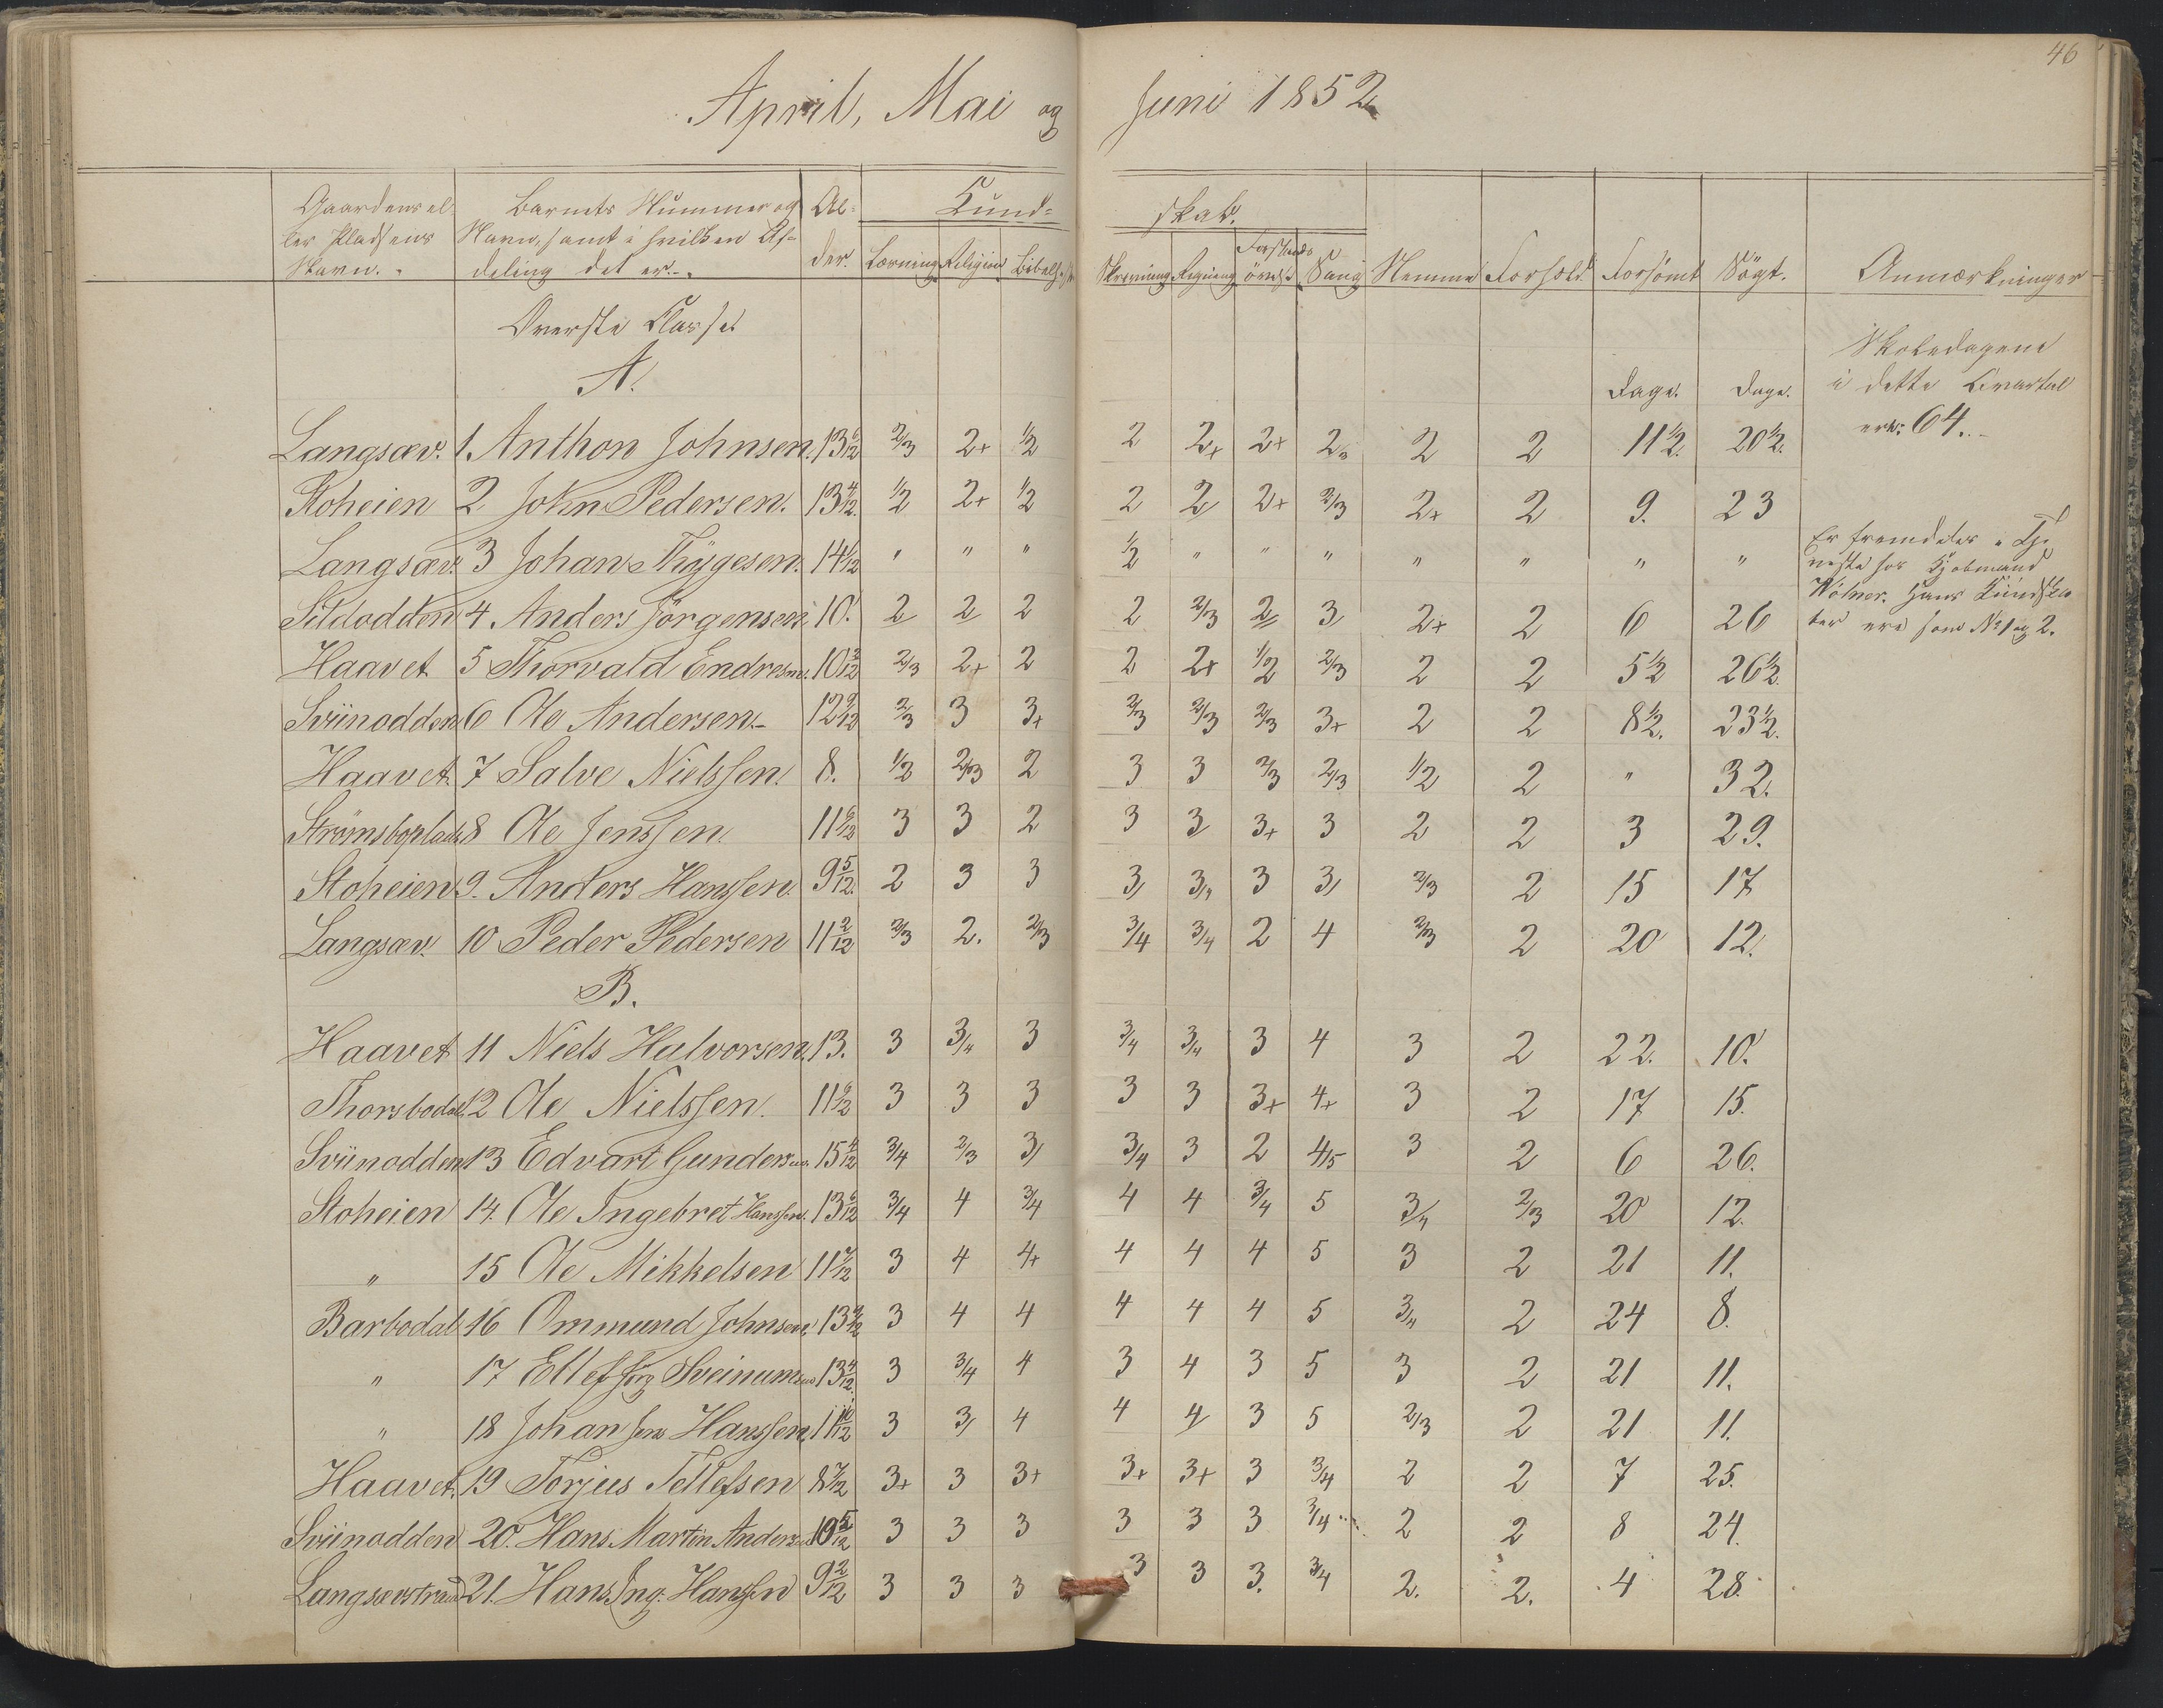 46
April, Mai og Juni 1852
Gaardens el- Barnets Nummer og Al- Kund- skab.
ler Pladsens Navn, samt i hvilken Af- der. Læsning Religion Bibelh. Skrivning Regning Forstands- Sang Nemme Forhold Forsömt Sögt. Anmærkninger
Navn. deling det er. övelse
Överste Classe.
A.
Dage. Dage.
Skoledagene
i dette Qvartal
ere: 64.
Langsæv. 1. Anthon Johnsen. 13 6/12 2/3 2+ 1/2 2 2+ 2+ 2 2 2 11 1/2. 20 1/2.
Stoheien 2 John Pedersen. 13 4/12. 1/2 2+ 1/2 2 2 2+ 2/3 2+ 2 9. 23
Langsæv. 3 Johan Thygesen. 14 1/12 " " " 1/2 " " " " " " "
Er fremdeles i Tje-
neste hos Kjöbmand
hans Kundska-
ber ere som No 1 og 2.
Sildodden 4 Anders Jörgensen 10. 2 2 2 2 2/3 2 3 2+ 2 6 26
Haavet 5 Thorvald Endresen. 10 3/12 2/3 2+ 2 2 2+ 1/2 2/3 2 2 5 1/2 26 1/2.
Sviinodden 6 Ole Andersen. 12 9/12 2/3 3 3+ 2/3 2/3 2/3 3+ 2 2 8 1/2. 23 1/2.
Haavet. 7 Salve Nielssen. 8. 1/2 2/3 2 3 3 2/3 2/3 1/2 2 " 32.
Strömsboplads 8 Ole Jenssen. 11 6/12 3 3 2 3 3 3+ 3 2 2 3 29.
Stoheien 9. Anders Hanssen. 9 5/12. 2 3 3 3 3/4 3 3 2/3 2 15 17
Langsæv. 10 Peder Pedersen 11 2/12 2/3 2. 2/3 3/4 3/4 2 4 2/3 2 20 12.
B.
Haavet 11 Niels Halvorsen. 13. 3 3/4 3 3/4 3/4 3 4 3 2 22. 10.
Thorsbodal. 12 Ole Nielssen. 11 9/12 3 3 3 3 3 3+ 4+ 3 2 17 15.
Sviinodden 13 Edvart Gundersen. 15 4/12 3/4 2/3 3 3/4 3 2 4/5 3 2 6 26.
Stoheien 14. Ole Ingebret Hanssen. 13 6/12 3/4 4 3/4 4 4 3/4 5 3/4 2/3 20 12.
" 15 Ole Mikkelsen 11 7/12 3 4 4+ 4 4 4 5 3 2 21 11.
Barbodal 16 Ommund Johnsen. 13 4/12 3 4 4 4 4 4 5 3/4 2 24 8.
" 17 Ellef Jörg Sveinumsen 13 4/12. 3 3/4 4 3 4 3 5 3 2 21 11.
" 18 Johan Jens Hanssen. 11 10/12 3 3 4 4 4 3 5 2/3 2 21 11.
Haavet. 19 Torjus Tellefsen 8 7/12 3+ 3 3+ 3+ 3+ 3 3/4 2 2 7 25.
Sviinodden 20. Hans Martin Andersen 10 5/12 3 3 3 3 3 3 3/4 2 2 8 24.
Langsævstrand 21. Hans Ing. Hanssen 9 2/12 3 3 3 3 3 3. 3/4 2. 2. 4 28.